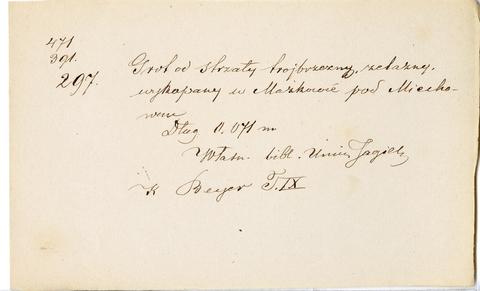 471
391.
297.
Grot od strzały trójbrzeżny, żelazny,
wykopany w Mazkowie pod Miecho-
wem
Dług 0.071 m
Własn. bibl. Uniw. Jagiell.
K Beyer T. IX